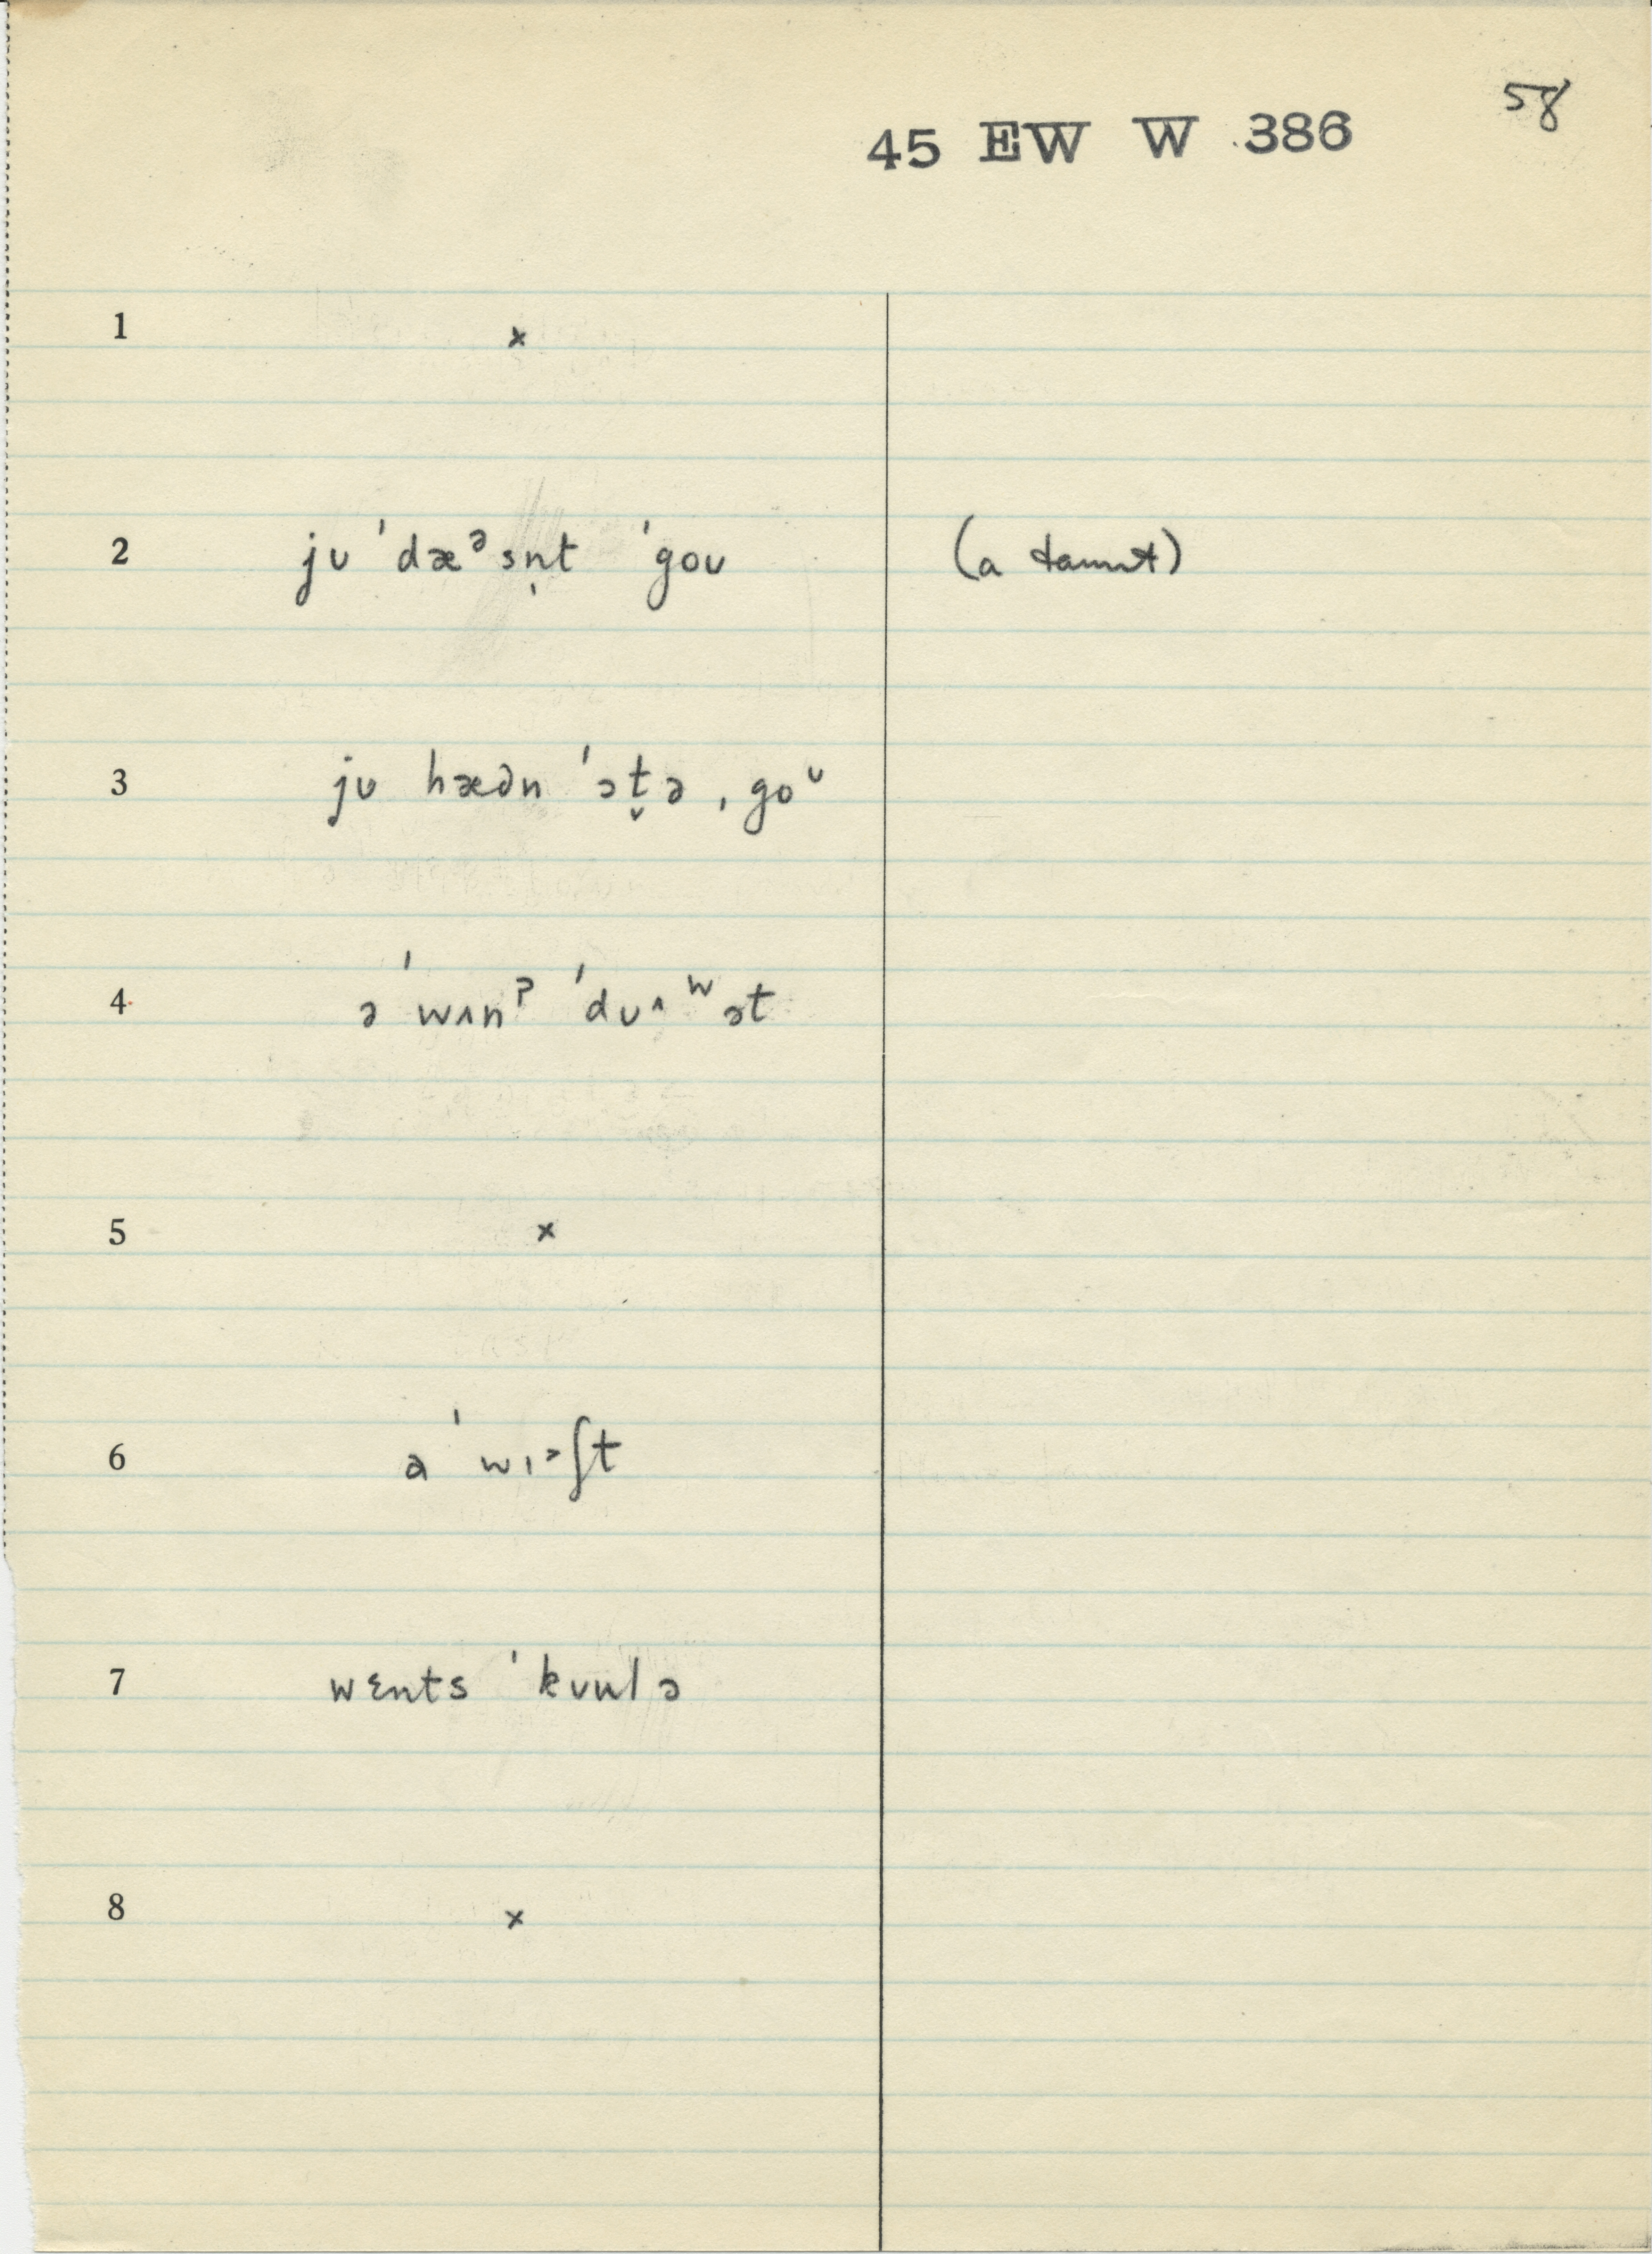 58
45 EW W 386
1 ×
2 jʊ ˈdæᵊsn̩t ˈgoʊ (a taunt)
3 jʊ hædn ˈɔt̬ə ˌgoᶷ
4 ə ˈwʌnˀ ˈdʊ^ʷət
5 ×
6 a ˈwɪ˃ʃt
7 wɛnts ˈkʊʊlə
8 ×